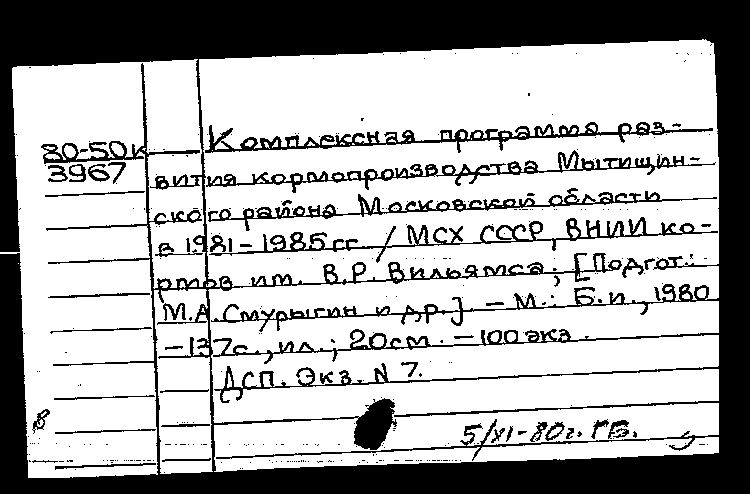 Комплексная программа раз-
80-50к
3967
вития кормопроизводства Мытищин-
ского района Московской области
в 1981-1985гг. / МСХ СССР, ВНИИ ко-
рмов им. В.Р. Вильямса; [Подгот.:
М.А. Смурыгин и др.]. - М.: Б.и., 1980
-137с., ил.; 20см. -100 экз.
ДСП. Экз. N 7.
8
5/XI-80г. ГБ.